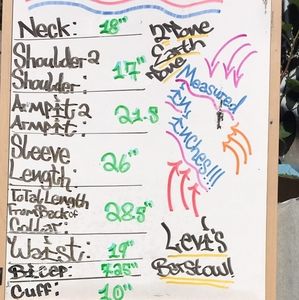 Neck: 18"
Shoulder 2
Shoulder: 17"
Armpit 2
Armpit: 21.5
Sleeve
Length: 26"
Total Length
From Back of
Collar: 28.5"
Waist: 19"
Bicep: 7.25"
Cuff: 10"
2 Tone
Earth
Tone
Measured
in
inches!!!
Levi's